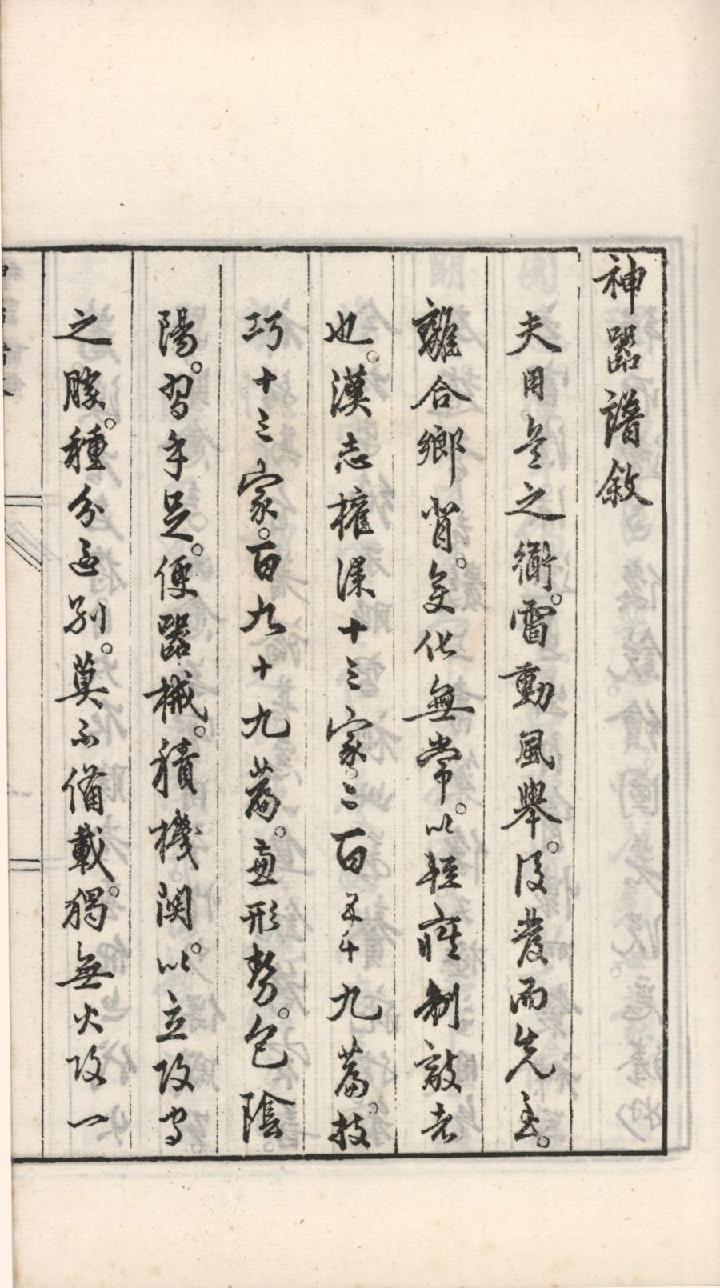 神器譜敘
夫用兵之術。雷動風舉。後發而先至。
離合鄉背。變化無常。以輕疾制敵者
也。漢志權謀十三家。二百五十九篇。技
巧十三家。百九十九篇。兼形勢。包陰
陽。習手足。便器械。積機関。以立攻守
之勝。種分區別。莫不備載。獨無火攻一